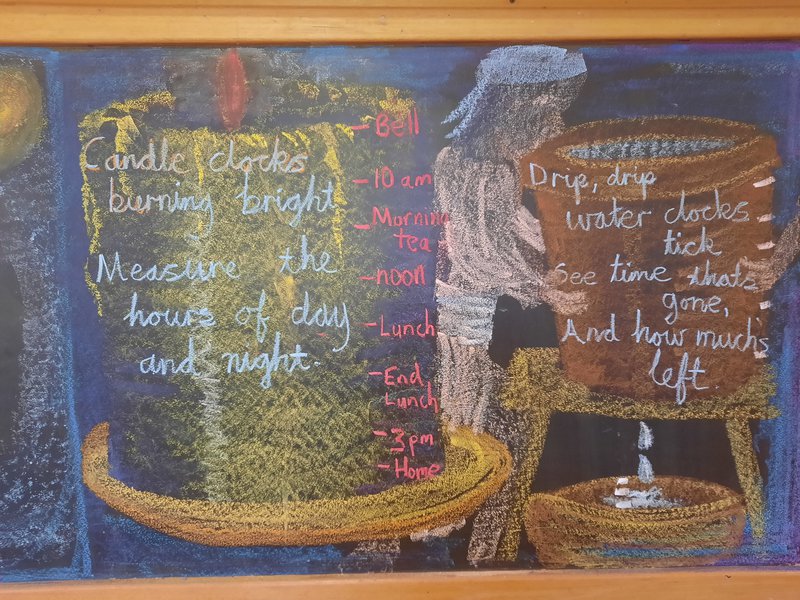 Candle clocks
burning bright
Measure the
hours of day
and night.
Bell
10 am
Morning
tea
noon
Lunch
End
Lunch
3pm
Home
Drip, drip
water clocks
tick
See time thats
gone,
And how much's
left.